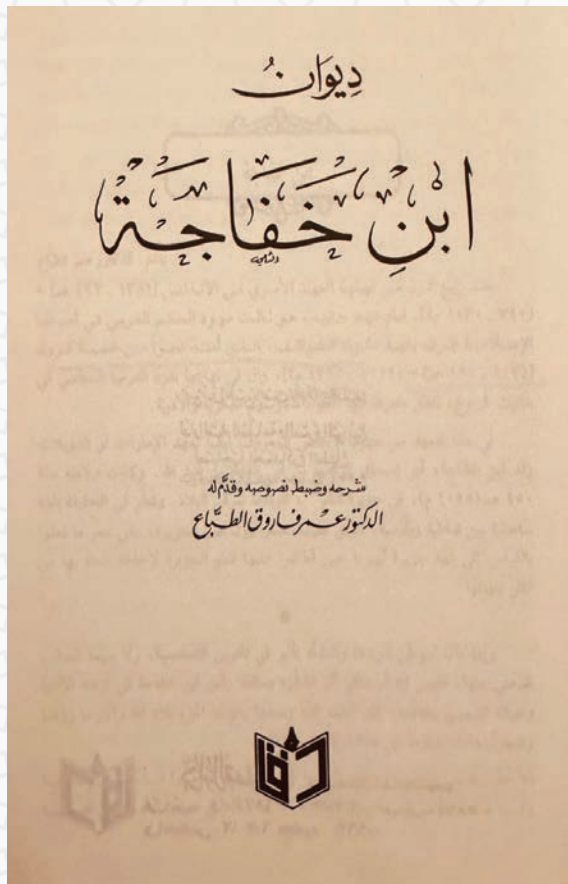 ديوَانُ
ابْنِ خَفَاجَة
شرحه وضبط نصوصه وقدَّم له
الدكتور عمر فاروق الطبَّاع